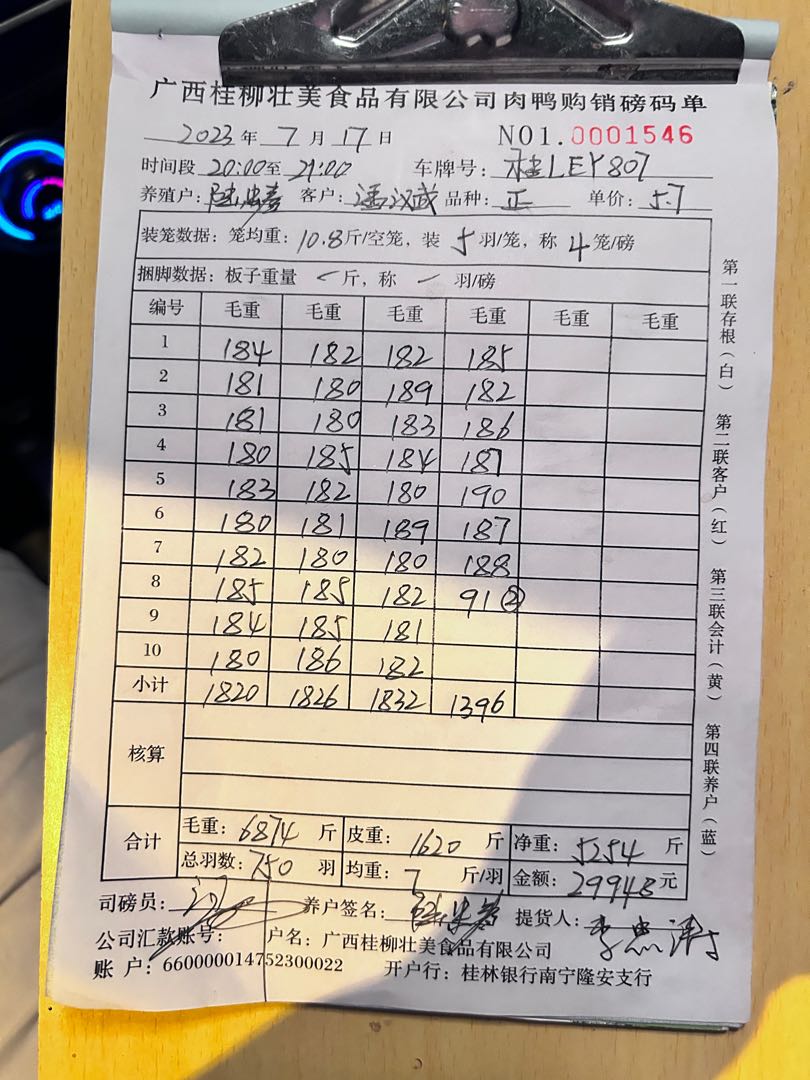 广西桂柳壮美食品有限公司肉鸭购销磅码单
2023年 7月 17日 NO1.0001546
时间段 20:00至 21:00 车牌号: 桂LEY807
养殖户: 客户: 潘汉武 品种: 正 单价: 5.7
装笼数据: 笼均重: 10.8斤/空笼, 装 5 羽/笼, 称 4 笼/磅
捆脚数据: 板子重量 斤, 称 羽/磅
编号 毛重 毛重 毛重 毛重 毛重 毛重
1 184 182 182 185
2 181 180 189 182
3 181 180 183 186
4 180 185 184 187
5 183 182 180 190
6 180 181 189 187
7 182 180 180 188
8 185 185 182 91②
9 184 185 181
10 180 186 182
小计 1820 1826 1832 1396
核算
合计 毛重: 6874 斤 皮重: 1620 斤 净重: 5254 斤
总羽数: 750 羽 均重: 7 斤/羽 金额: 29948 元
司磅员: 养户签名: 提货人:
公司汇款账号: 户名: 广西桂柳壮美食品有限公司
账 户: 660000014752300022 开户行: 桂林银行南宁隆安支行
第一联存根(白) 第二联客户(红) 第三联会计(黄) 第四联养户(蓝)